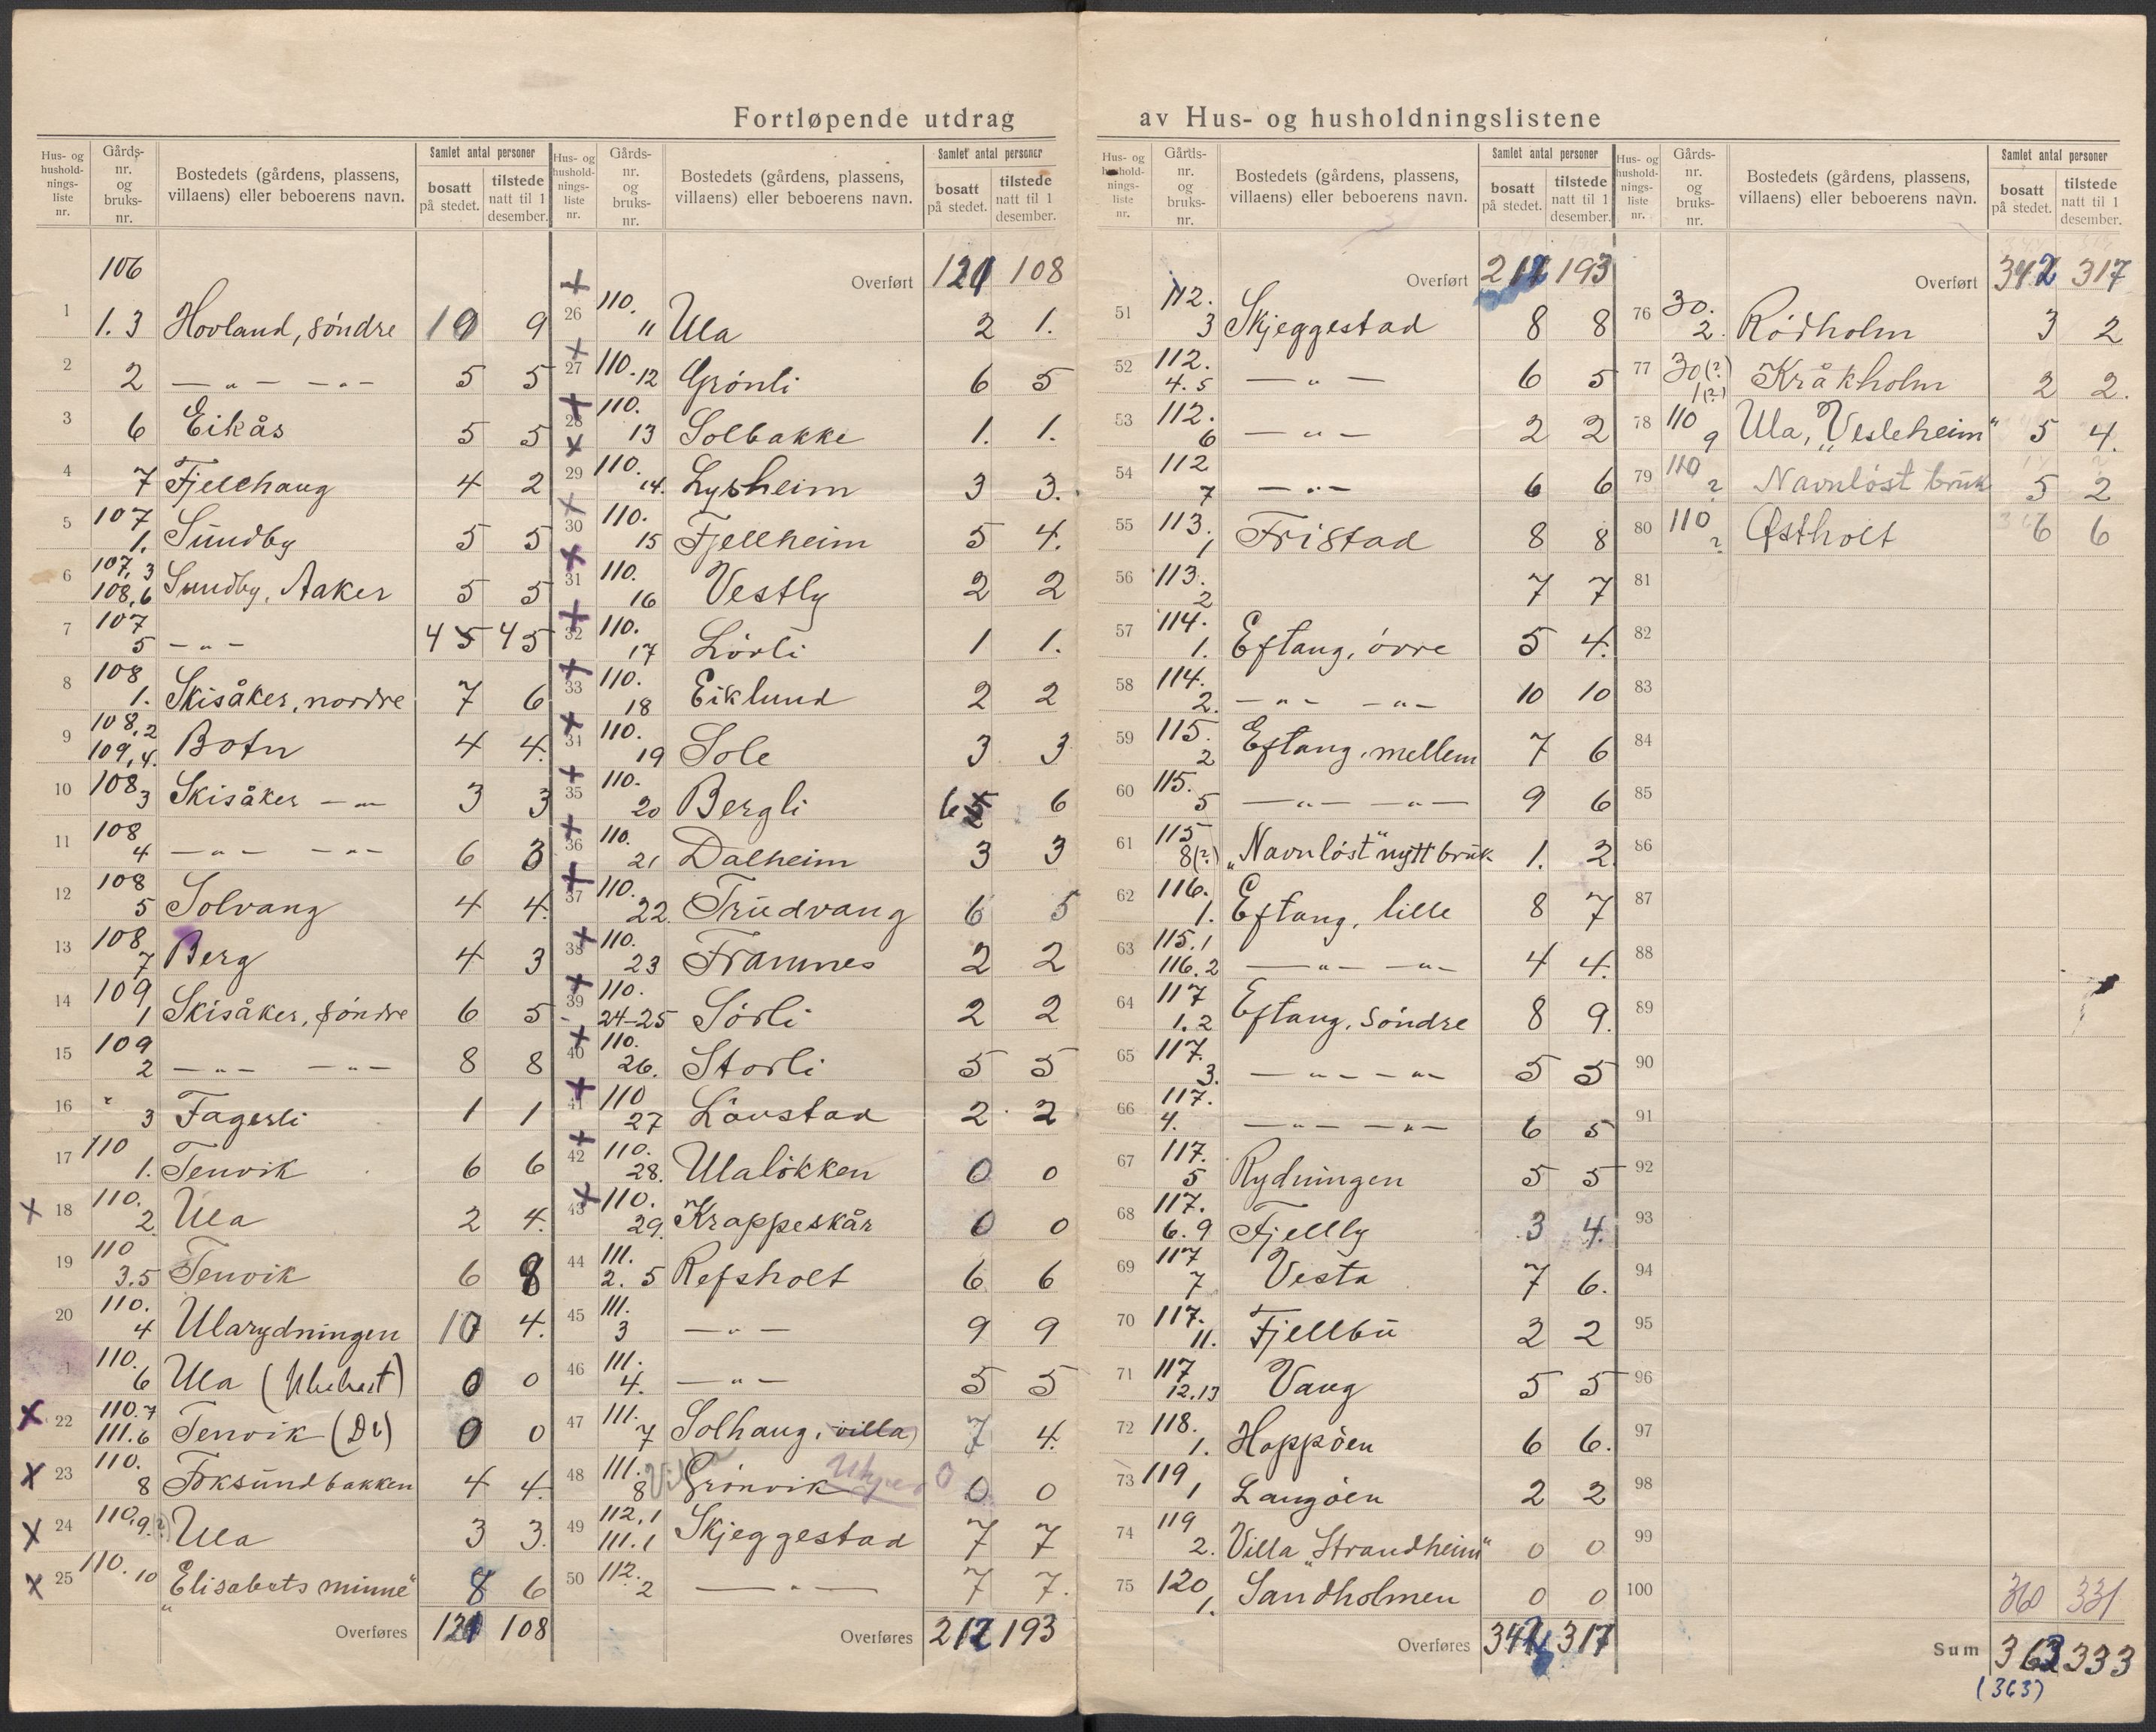 Fortløpende utdrag av Hus- og husholdningslistene
Hus- og hushold-nings-liste nr. Gårds-nr. og bruks-nr. Bostedets (gårdens, plassens, villaens) eller beboerens navn. Samlet antal personer bosatt på stedet. tilstede natt til 1 desember.
106
1 1.3 Hovland, söndre 10 9
2 2 — „ — — „ — 5 5
3 6 Eikås 5 5
4 7 Fjellhaug 4 2
5 107 1. Sundby 5 5
6 107,3 108,6 Sundby, Aaker 5 5
7 107 5 — „ — 45 45
8 108 1. Skisåker, nordre 7 6
9 108,2 109,4. Botn 4 4.
10 108 3 Skisåker — „ — 3 3
11 108 4 — „ — — „ — 6 3
12 108 5 Solvang 4 4.
13 108 7 Berg 4 3
14 109 1 Skisåker, söndre 6 5
15 109 2 — „ — — „ — 8 8
16 " 3 Fagerli 1 1
17 110 1. Tenvik 6 6
x 18 110. 2 Ula 2 4.
19 110 3.5 Tenvik 6 8
20 110. 4 Ularydningen 10 4.
1 110. 6 Ula (Ubebost) 0 0
x 22 110.7 111.6 Tenvik (Do) 0 0
x 23 110. 8 Foksundbakken 4 4.
x 24 110,9.(?) Ula 3 3.
x 25 110.10 „Elisabets minne" 8 6
Overføres 121 108
Hus- og hushold-nings-liste nr. Gårds-nr. og bruks-nr. Bostedets (gårdens, plassens, villaens) eller beboerens navn. Samlet antal personer bosatt på stedet. tilstede natt til 1 desember.
Overført 121 108
+ 26 110. 11 Ula 2 1.
+ 27 110.12 Grönli 6 5
+ 28 110. 13 Solbakke 1. 1.
x 29 110. 14. Lysheim 3 3.
x 30 110. 15 Fjellheim 5 4.
x 31 110. 16 Vestly 2 2
+ 32 110. 17 Lövli 1 1.
+ 33 110. 18 Eiklund 2 2
x 34 110. 19 Sole 3 3
+ 35 110. 20 Bergli 6 5 6
+ 36 110. 21 Dalheim 3 3
+ 37 110. 22. Trudvang 6 5
+ 38 110. 23 Framnes 2 2
x 39 110. 24-25 Sörli 2 2
x 40 110. 26. Storli 5 5
+ 41 110 27 Lövstad 2 2
+ 42 110. 28. Ulalökken 0 0
+ 43 110. 29. Krappeskår 0 0
44 111. 2. 5 Refsholt 6 6
45 111. 3 — „ — 9 9
46 111. 4. — „ — 5 5
47 111. 7 Solhaug, villa 7 4.
48 111. 8 Grönvik 0 0
49 112,1 111.1 Skjeggestad 7 7
50 112. 2 — „ — 7 7.
Overføres 212 193
Hus- og hushold-nings-liste nr. Gårds-nr. og bruks-nr. Bostedets (gårdens, plassens, villaens) eller beboerens navn. Samlet antal personer bosatt på stedet. tilstede natt til 1 desember.
Overført 212 193
51 112. 3 Skjeggestad 8 8
52 112. 4.5 — „ — 6 5
53 112. 6 — „ — 2 2
54 112 7 — „ — 6 6
55 113. 1 Fristad 8 8
56 113. 2 7 7
57 114. 1. Eftang, övre 5 4.
58 114. 2. — „ — — „ — 10 10
59 115. 2 Eftang, mellem 7 6
60 115. 5 — „ — — „ — 9 6
61 115 8(?) „Navnlöst" nytt bruk 1. 2.
62 116. 1. Eftang, lille 8 7
63 115.1 116.2 — „ — — „ — 4 4.
64 117 1.2 Eftang, söndre 8 9.
65 117. 3. — „ — — „ — 5 5
66 117. 4. — „ — — „ — 6 5
67 117. 5 Rydningen 5 5
68 117. 6.9 Fjelly 3 4.
69 117 7 Vesta 7 6.
70 117. 11. Fjellbu 2 2
71 117 12.13 Vang 5 5
72 118. 1. Hoppöen 6 6.
73 119 1 Langöen 2 2
74 119 2. Villa „Strandheim" 0 0
75 120 1. Sandholmen 0 0
Overføres 342 317
Hus- og hushold-nings-liste nr. Gårds-nr. og bruks-nr. Bostedets (gårdens, plassens, villaens) eller beboerens navn. Samlet antal personer bosatt på stedet. tilstede natt til 1 desember.
Overført 342 317
76 30. 2. Rödholm 3 2
77 30(?) 1(?) Kråkholm 2 2.
78 110 9 Ula, „Vesleheim" 5 4.
79 110 ? Navnlöst bruk 5 2
80 110 ? Østholt 6 6
81
82
83
84
85
86
87
88
89
90
91
92
93
94
95
96
97
98
99
100
360 331
Sum 363 333
(363)